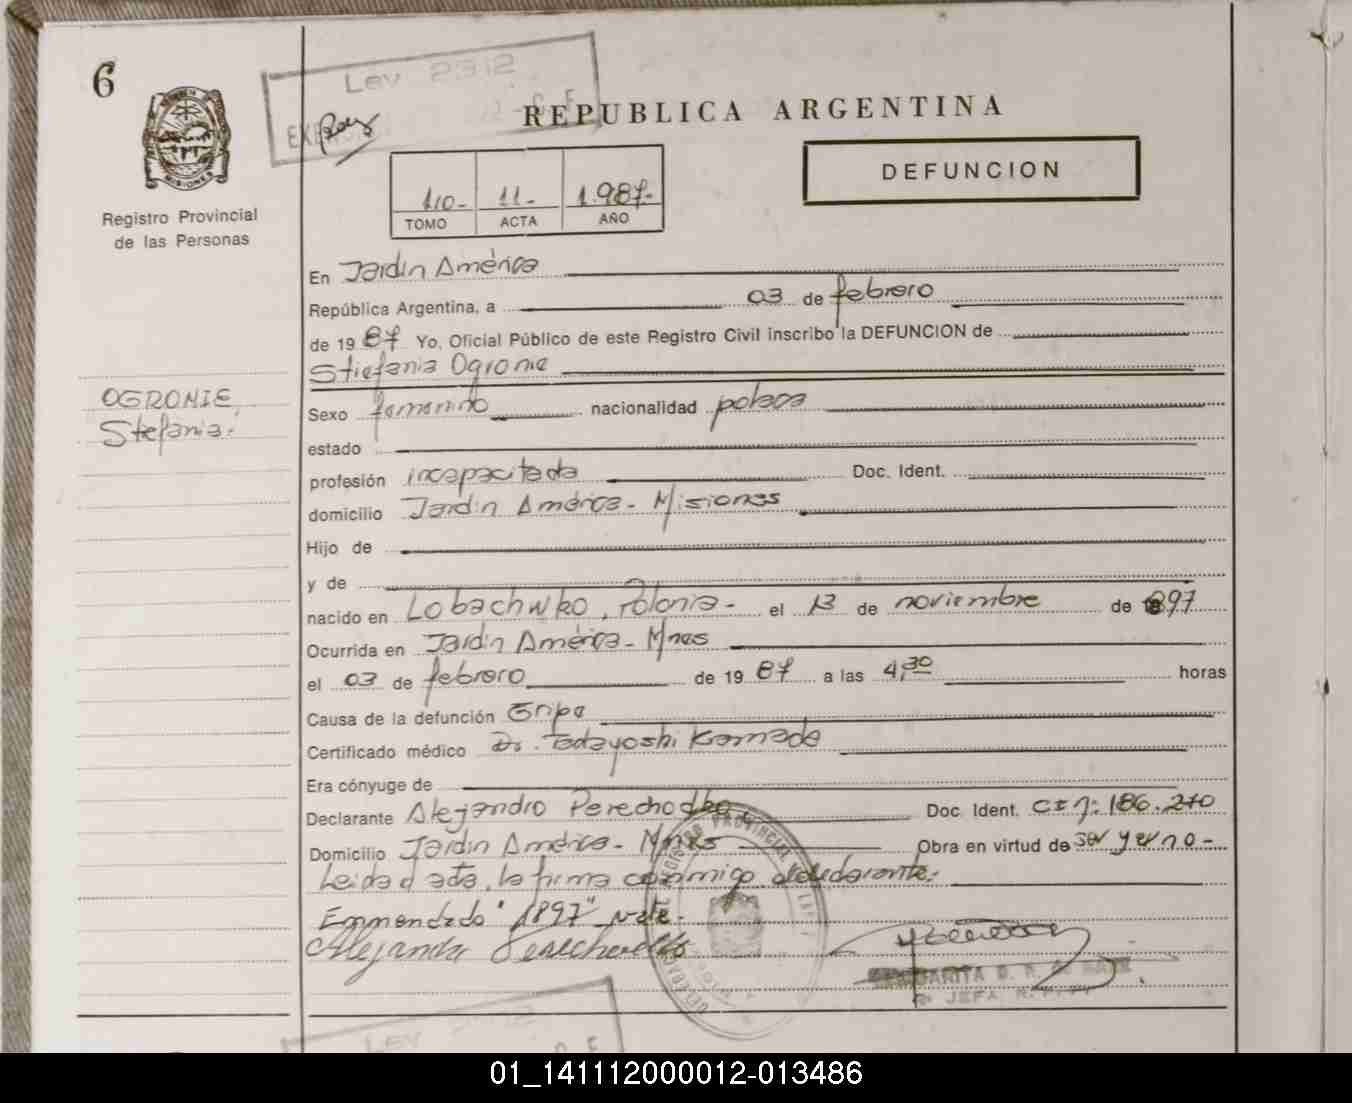 6
Ley 2312
REPUBLICA ARGENTINA
DEFUNCION
MISIONES
Registro Provincial
de las Personas
110- 11- 1.987-
TOMO ACTA AÑO
En Jardín América
República Argentina, a 03 de febrero
de 19 87 Yo, Oficial Público de este Registro Civil inscribo la DEFUNCION de
Stiefania Ogronie
OGRONIE,
Stefania.
Sexo femenino nacionalidad polaca
estado
profesión incapacitada Doc. Ident.
domicilio Jardín América - Misiones
Hijo de
y de
nacido en Lobachwko, Polonia - el 13 de noviembre de 1897
Ocurrida en Jardín América - Mnes
el 03 de febrero de 19 87 a las 4,30 horas
Causa de la defunción Gripe
Certificado médico Dr. Tadayoshi Kamada
Era cónyuge de
Declarante Alejandro Perechodko Doc. Ident. C I 7: 186.210
Domicilio Jardín América - Mnes Obra en virtud de ser yerno -
Leida el acta, la firma conmigo el declarante.
Enmendado "1897" vale.
Alejandro
JEFA R.P.
Ley 2312
01_141112000012-013486